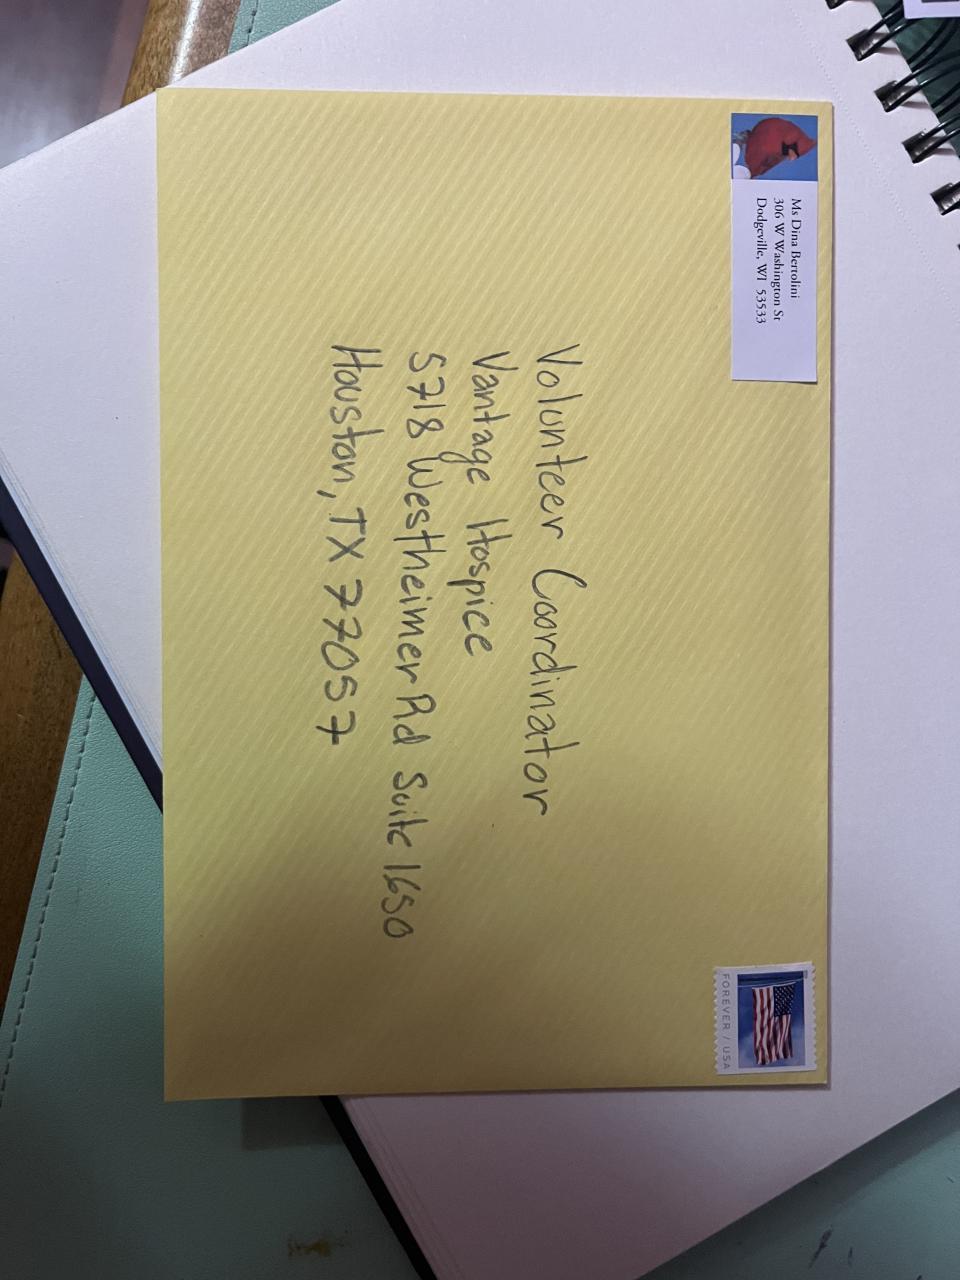 Ms Dina Bertolini
306 W Washington St
Dodgeville, WI 53533
FOREVER / USA
Volunteer Coordinator
Vantage Hospice
5718 Westheimer Rd Suite 1650
Houston, TX 77057